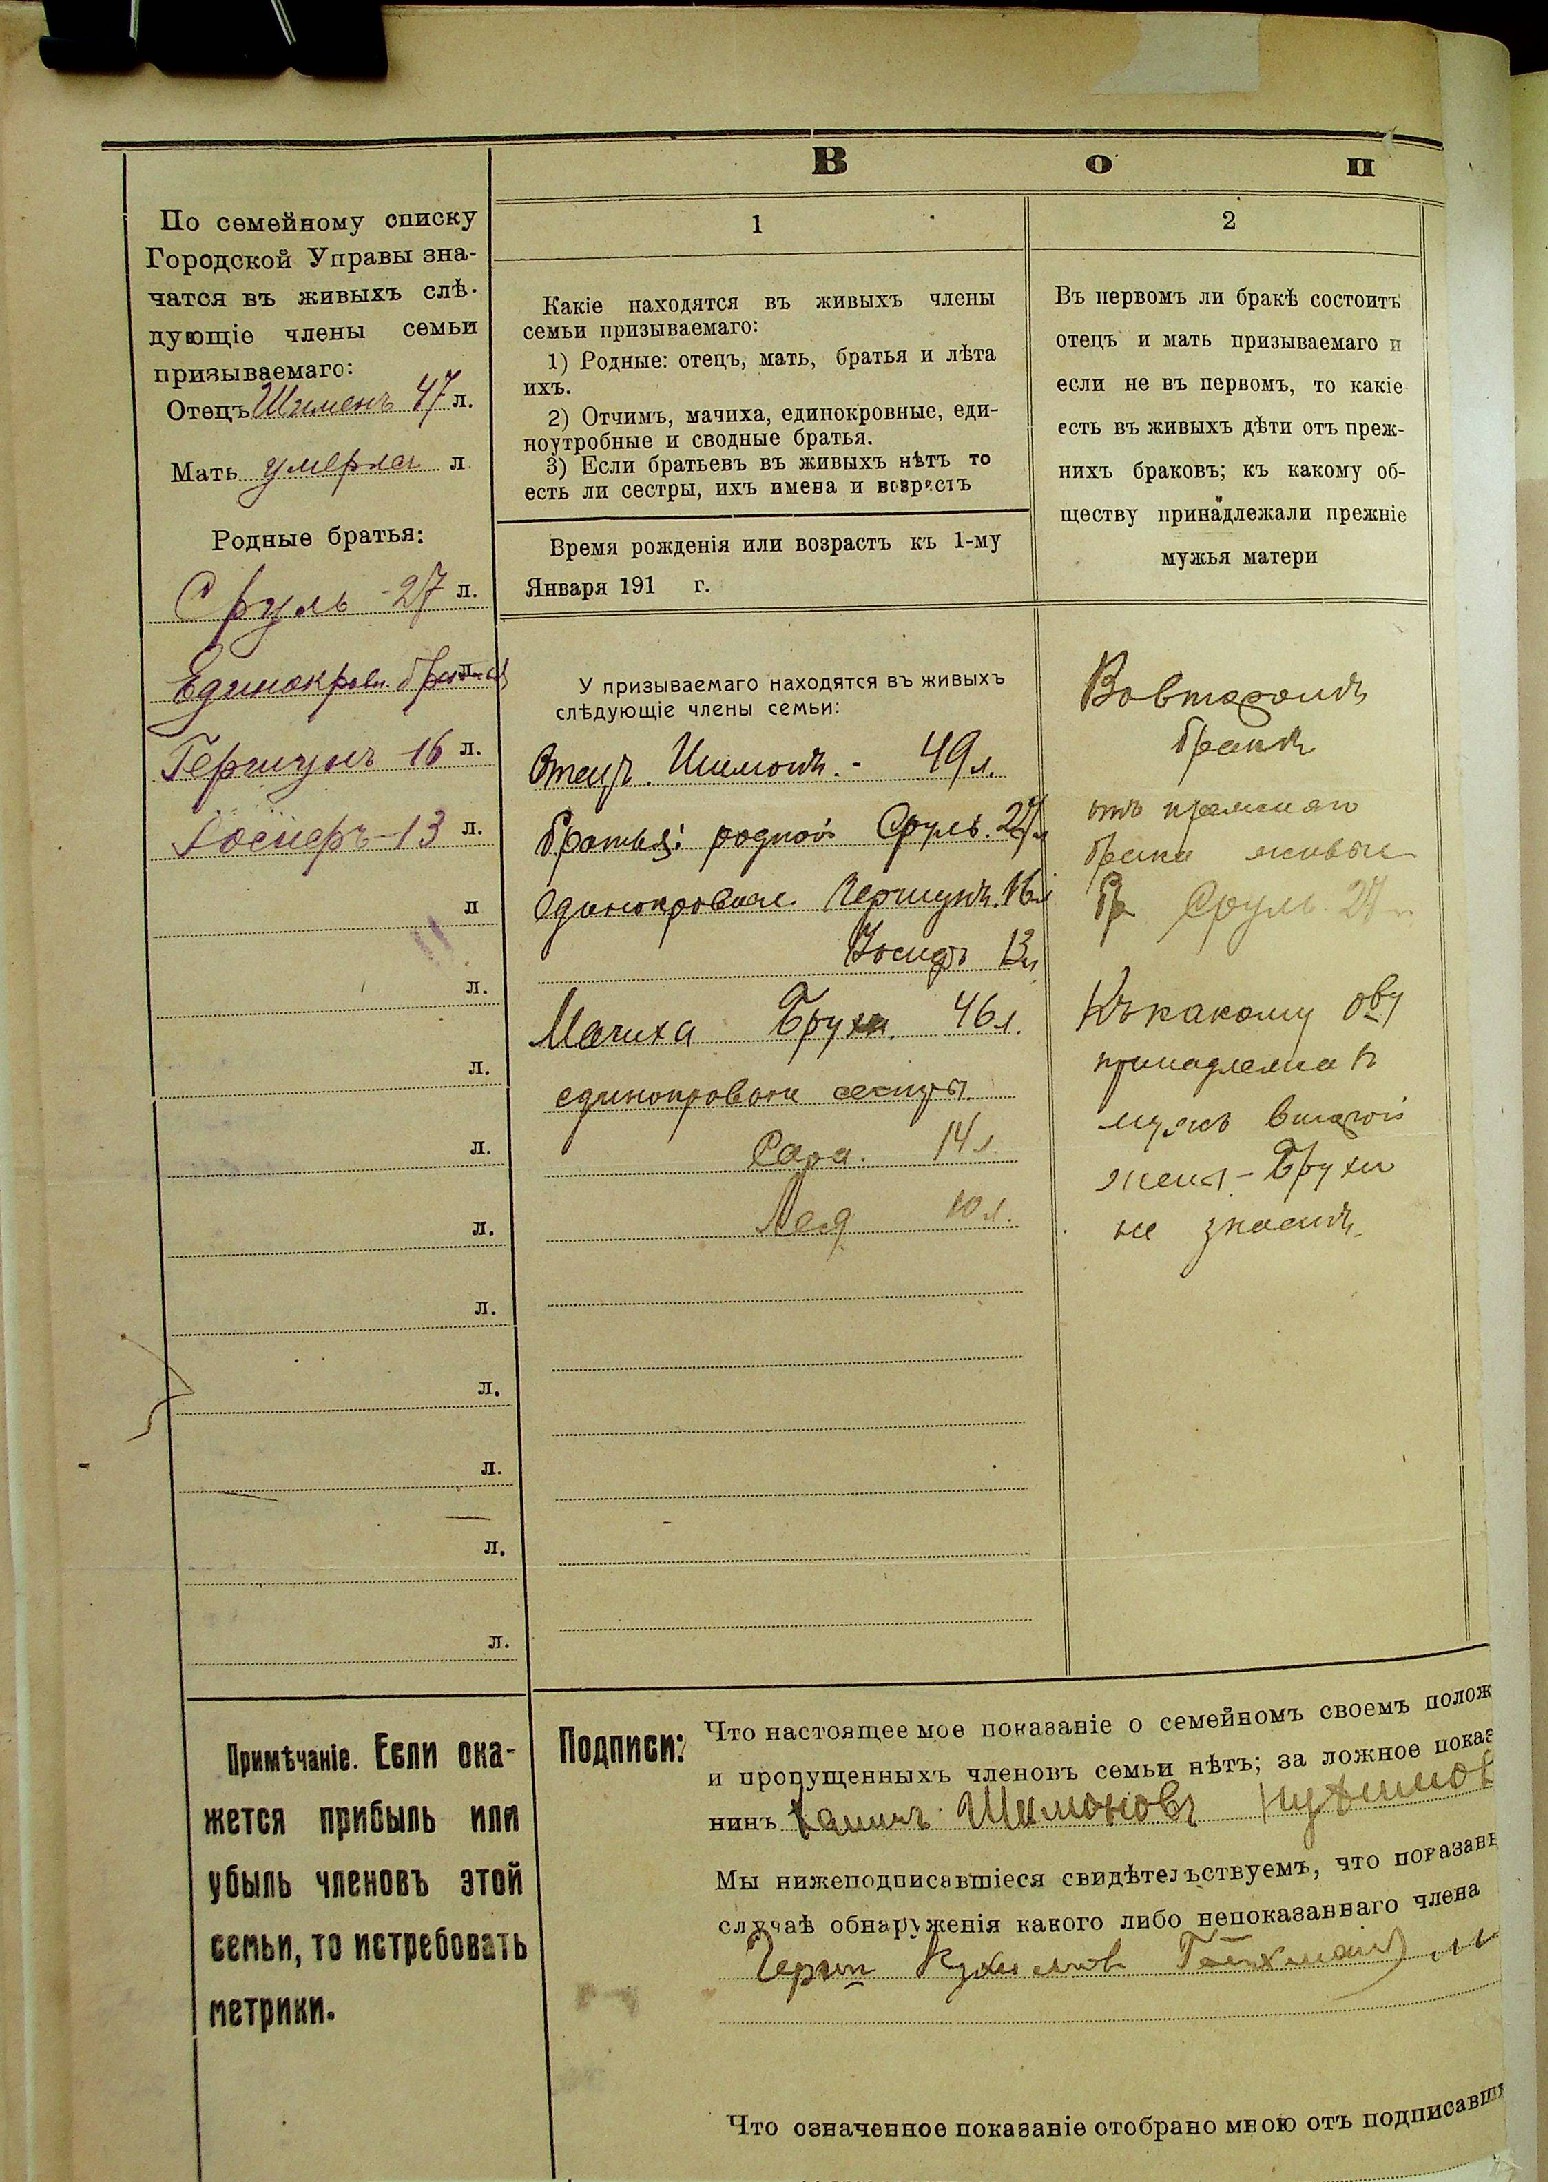 В о п
По семейному списку
Городской Управы зна-
чатся въ живыхъ слѣ-
дующіе члены семьи
призываемаго:
Отецъ Шименъ 47 л.
Мать умерла л
Родные братья:
Сруль - 27 л.
Единокровн. братья л.
Гершунъ 16 л.
Іосифъ - 13 л.
л
л.
л.
л.
л.
л.
л.
л.
л.
л.
1
Какіе находятся въ живыхъ члены
семьи призываемаго:
1) Родные: отецъ, мать, братья и лѣта
ихъ.
2) Отчимъ, мачиха, единокровные, еди-
ноутробные и сводные братья.
3) Если братьевъ въ живыхъ нѣтъ то
есть ли сестры, ихъ имена и возрастъ
Время рожденія или возрастъ къ 1-му
Января 191 г.
У призываемаго находятся въ живыхъ
слѣдующіе члены семьи:
Отецъ Шимонъ. - 49 л.
братья: родной Сруль. 27 л
единокровные Гершунъ. 16 л
Іосифъ 13 л
Мачиха Бруха. 46 л.
единокровные сестры.
Сара. 14 л.
Лея 10 л.
2
Въ первомъ ли бракѣ состоитъ
отецъ и мать призываемаго и
если не въ первомъ, то какіе
есть въ живыхъ дѣти отъ преж-
нихъ браковъ; къ какому об-
ществу принадлежали прежніе
мужья матери
Во второмъ
бракѣ
отъ прежняго
брака живые
бр. Сруль 27 л.
Къ какому о-ву
принадлежалъ
мужъ второй
жены - Брухи
не знаемъ.
Примѣчаніе. Если ока-
жется прибыль или
убыль членовъ этой
семьи, то истребовать
метрики.
Подписи:
Что настоящее мое показаніе о семейномъ своемъ полож
и пропущенныхъ членовъ семьи нѣтъ; за ложное показ
нинъ Шимоновъ
Мы нижеподписавшіеся свидѣтельствуемъ, что показанн
случаѣ обнаруженія какого либо непоказаннаго члена
Герш
Что означенное показаніе отобрано мною отъ подписавши